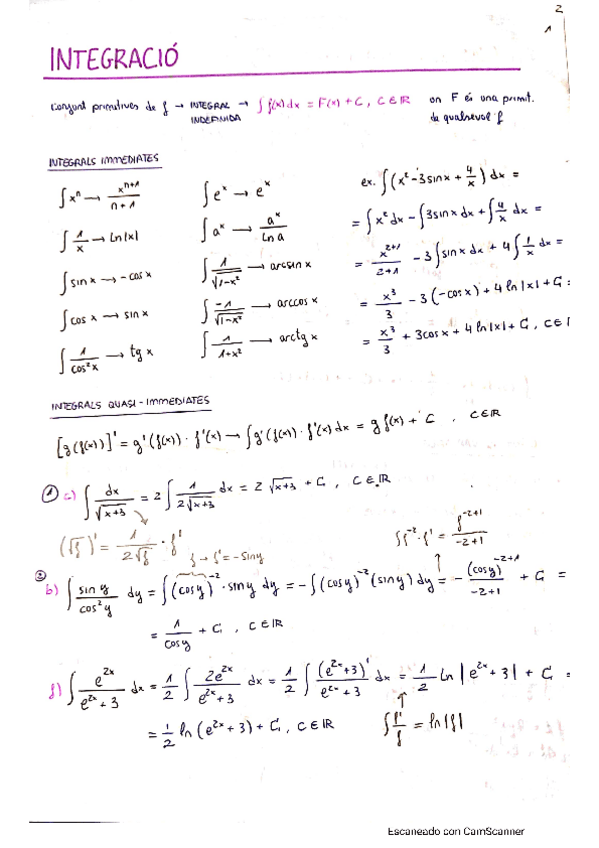 2
1
INTEGRACIÓ
Conjunt primitives de f → INTEGRAL INDEFINIDA → ∫ f(x) dx = F(x) + C, C ∈ ℝ on F és una primit. de qualsevol f
INTEGRALS IMMEDIATES
∫ xⁿ → xⁿ⁺¹/(n+1)
∫ 1/x → ln|x|
∫ sin x → -cos x
∫ cos x → sin x
∫ 1/cos²x → tg x
∫ eˣ → eˣ
∫ aˣ → aˣ/ln a
∫ 1/√(1-x²) → arcsin x
∫ -1/√(1-x²) → arccos x
∫ 1/(1+x²) → arctg x
ex. ∫ (x² - 3 sin x + 4/x) dx =
= ∫ x² dx - ∫ 3 sin x dx + ∫ 4/x dx =
= x²⁺¹/(2+1) - 3 ∫ sin x dx + 4 ∫ 1/x dx =
= x³/3 - 3 (-cos x) + 4 ln|x| + C =
= x³/3 + 3cos x + 4 ln|x| + C, C ∈ ℝ
INTEGRALS QUASI-IMMEDIATES
[g(f(x))]' = g'(f(x)) · f'(x) → ∫ g'(f(x)) · f'(x) dx = g f(x) + C , C ∈ ℝ
① c) ∫ dx/√(x+3) = 2 ∫ 1/(2√(x+3)) dx = 2 √(x+3) + C , C ∈ ℝ
(√f)' = 1/(2√f) · f'
f → f' = -sin y
∫ f⁻² · f' = f⁻²⁺¹/(-2+1)
② b) ∫ sin y/cos²y dy = ∫ (cos y)⁻² · sin y dy = - ∫ (cos y)⁻² (sin y) dy = - (cos y)⁻²⁺¹/(-2+1) + C =
= 1/cos y + C , C ∈ ℝ
f) ∫ e²ˣ/(e²ˣ+3) dx = 1/2 ∫ 2e²ˣ/(e²ˣ+3) dx = 1/2 ∫ (e²ˣ+3)'/(e²ˣ+3) dx = 1/2 ln |e²ˣ+3| + C =
= 1/2 ln (e²ˣ+3) + C, C ∈ ℝ
∫ f'/f = ln|f|
Escaneado con CamScanner